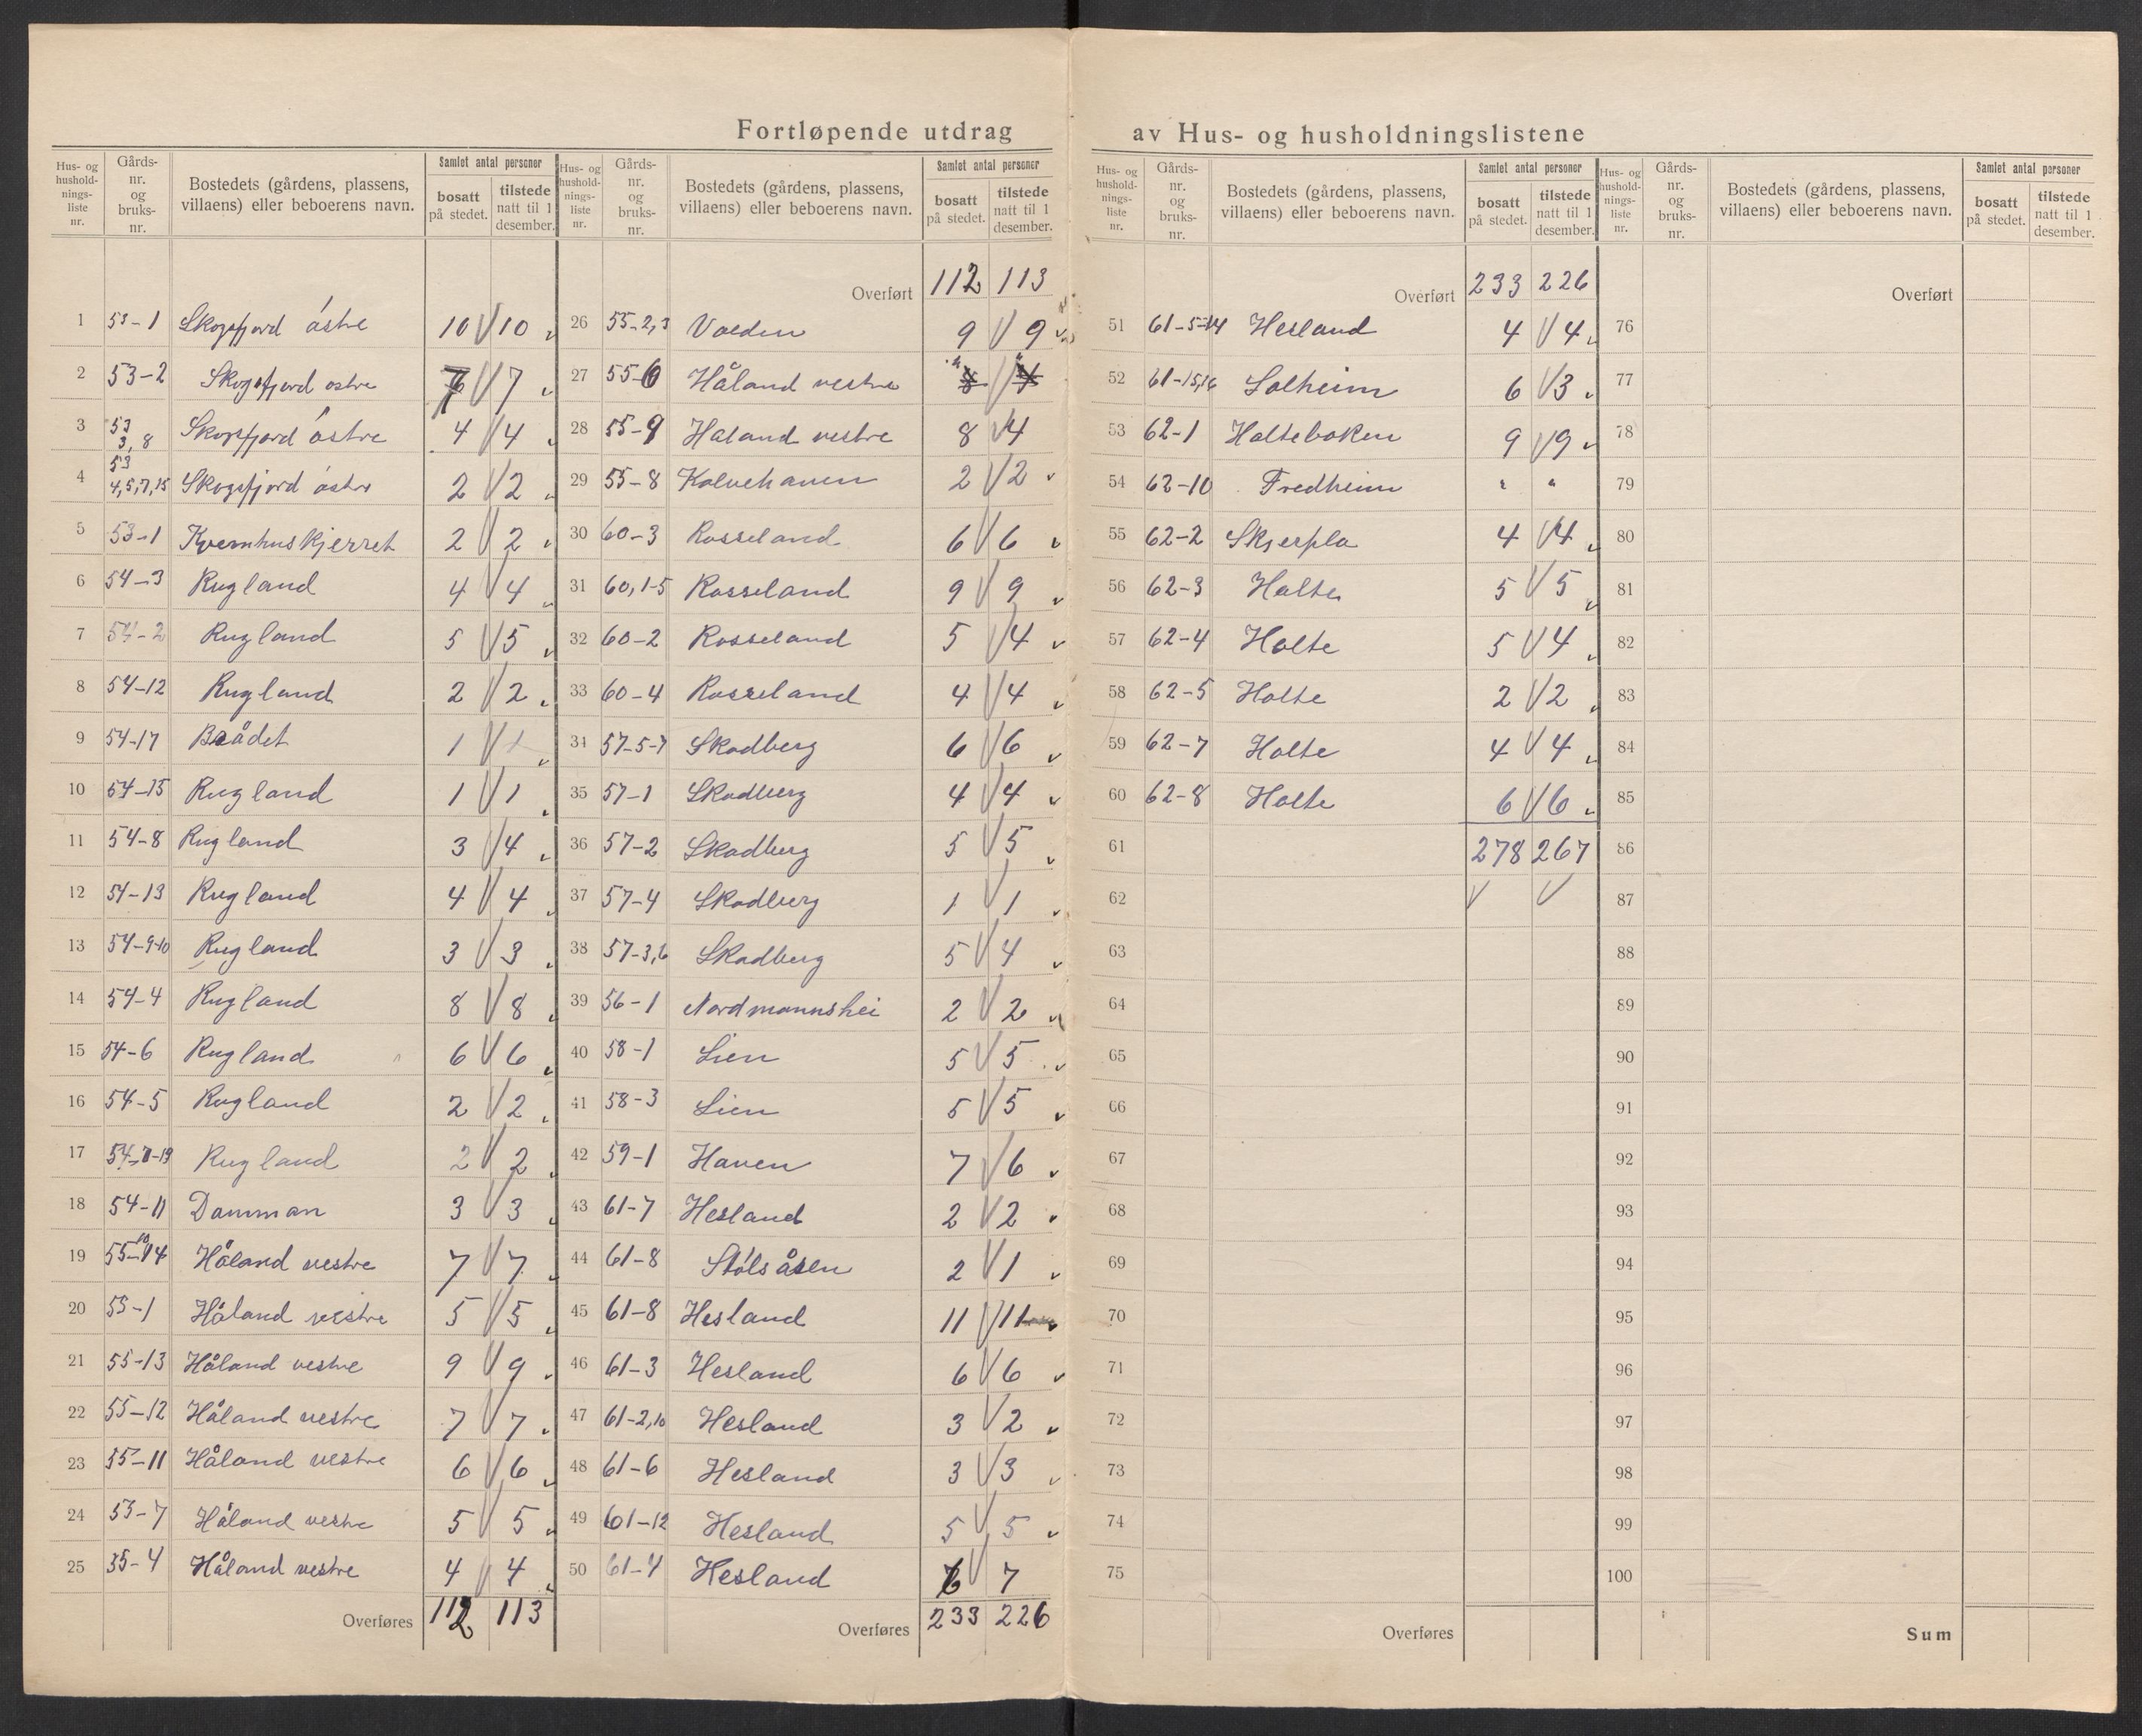 Fortløpende utdrag av Hus- og husholdningslistene
Hus- og husholdnings- liste nr. | Gårds- nr. og bruks- nr. | Bostedets (gårdens, plassens, villaens) eller beboerens navn. | Samlet antal personer bosatt på stedet. | tilstede natt til 1 desember.
1 53-1 Skogsfjord østre 10 10
2 53-2 Skogsfjord østre 7 7
3 53 3, 8 Skogsfjord østre 4 4
4 53 4,5,7,15 Skogsfjord østre 2 2
5 53-1 Kvernhuskjerret 2 2
6 54-3 Rugland 4 4
7 54-2 Rugland 5 5
8 54-12 Rugland 2 2
9 54-17 Brådet 1 1
10 54-15 Rugland 1 1
11 54-8 Rugland 3 4
12 54-13 Rugland 4 4
13 54-9-10 Rugland 3 3
14 54-4 Rugland 8 8
15 54-6 Rugland 6 6
16 54-5 Rugland 2 2
17 Rugland 2 2
18 54-11 Damman 3 3
19 55-14 10 Håland vestre 7 7
20 55-1 Håland vestre 5 5
21 55-13 Håland vestre 9 9
22 55-12 Håland vestre 7 7
23 55-11 Håland vestre 6 6
24 55-7 Håland vestre 5 5
25 55-4 Håland vestre 4 4
Overføres 112 113
Hus- og husholdnings- liste nr. | Gårds- nr. og bruks- nr. | Bostedets (gårdens, plassens, villaens) eller beboerens navn. | Samlet antal personer bosatt på stedet. | tilstede natt til 1 desember.
Overført 112 113
26 55-2,3 Volden 9 9
27 55-6 Håland vestre " "
28 55-9 Haland vestre 8 4
29 55-8 Kalvehaven 2 2
30 60-3 Rosseland 6 6
31 60,1-5 Rosseland 9 9
32 60-2 Rosseland 5 4
33 60-4 Rosseland 4 4
34 57-5-7 Skadberg 6 6
35 57-1 Skadberg 4 4
36 57-2 Skadberg 5 5
37 57-4 Skadberg 1 1
38 57-3,6 Skadberg 5 4
39 56-1 Nordmannshei 2 2
40 58-1 Lien 5 5
41 58-3 Lien 5 5
42 59-1 Haven 7 6
43 61-7 Hesland 2 2
44 61-8 Stølsåsen 2 1
45 61-8 Hesland 11 11
46 61-3 Hesland 6 6
47 61-2,10 Hesland 3 2
48 61-6 Hesland 3 3
49 61-12 Hesland 5 5
50 61-4 Hesland 7
Overføres 233 226
Hus- og husholdnings- liste nr. | Gårds- nr. og bruks- nr. | Bostedets (gårdens, plassens, villaens) eller beboerens navn. | Samlet antal personer bosatt på stedet. | tilstede natt til 1 desember.
Overført 233 226
51 61-5-14 Hesland 4 4
52 61-15,16 Solheim 6 3
53 62-1 Holtebaken 9 9
54 62-10 Fredheim " "
55 62-2 Skjerpla 4 4
56 62-3 Holte 5 5
57 62-4 Holte 5 4
58 62-5 Holte 2 2
59 62-7 Holte 4 4
60 62-8 Holte 6 6
61 278 267
62
63
64
65
66
67
68
69
70
71
72
73
74
75
Overføres
Hus- og husholdnings- liste nr. | Gårds- nr. og bruks- nr. | Bostedets (gårdens, plassens, villaens) eller beboerens navn. | Samlet antal personer bosatt på stedet. | tilstede natt til 1 desember.
Overført
76
77
78
79
80
81
82
83
84
85
86
87
88
89
90
91
92
93
94
95
96
97
98
99
100
Sum